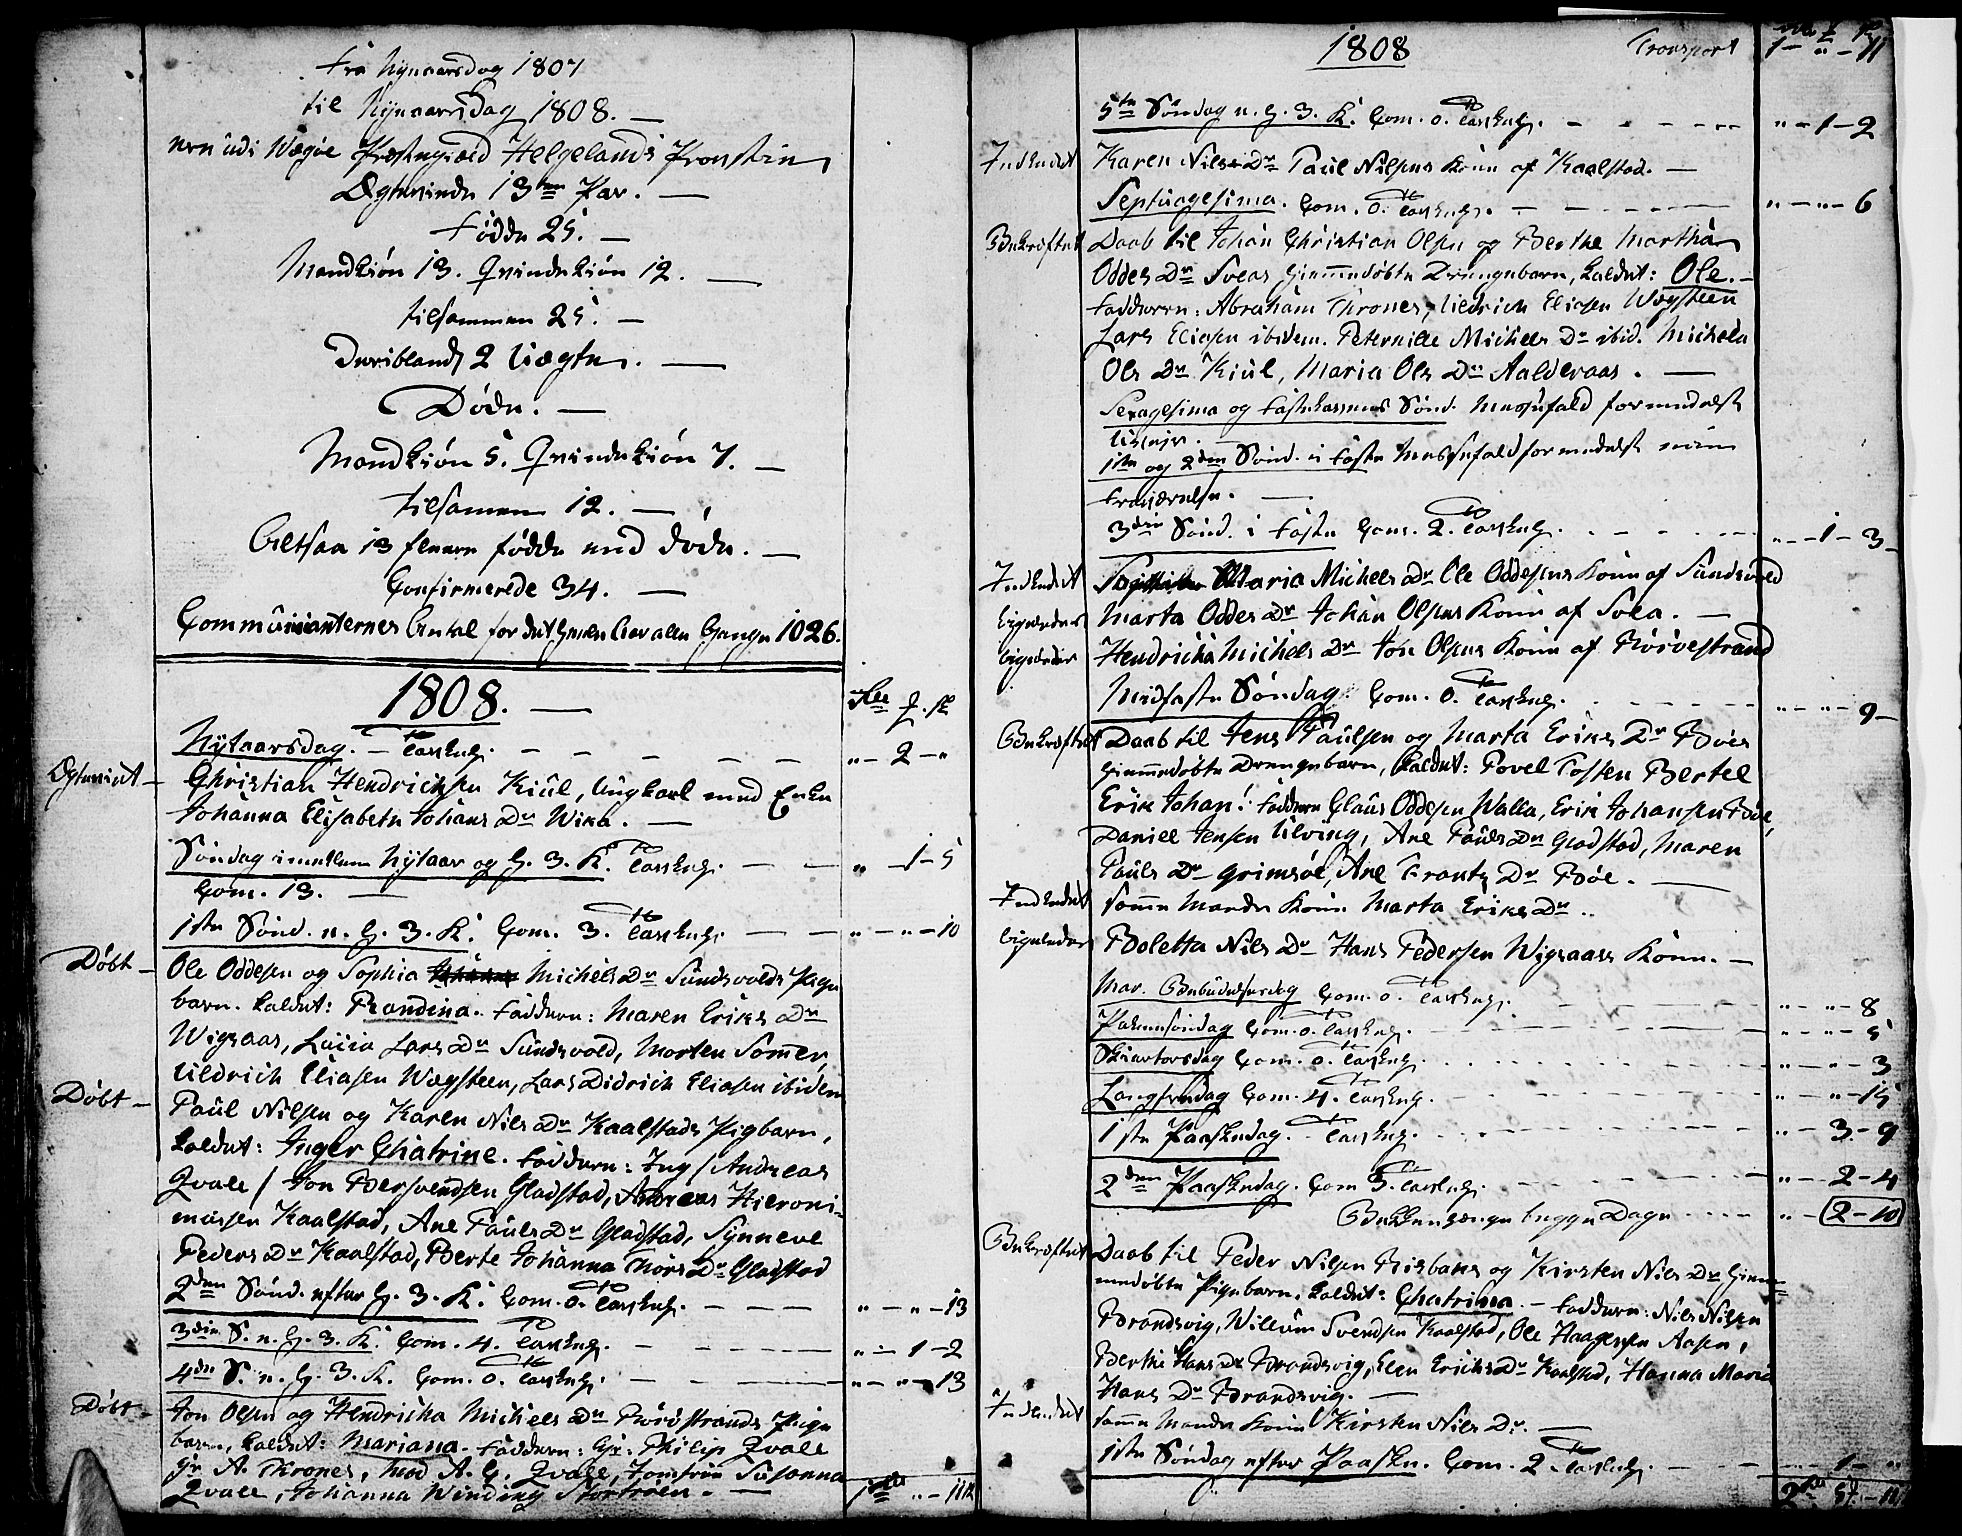 Fra Nyaarsdag 1807
til Nyaarsdag 1808. —
ere udi Wegøe Præstegield Helgelands Provstie
Ægteviede 13 Par. —
Fødde 25. —
Mandkiøn 13. Qvindekiøn 12. —
tilsammen 25. —
Deriblandt 2 Uægte. —
Døde. —
Mandkiøn 5. Qvindekiøn 7. —
tilsamen 12. —
Altsaa 13 fleere fødde end døde. —
Confirmerede 34. —
Communicanternes Antal for det heele Aar alle Gange 1026.
1808. —
Nytaarsdag. — Tavlepg. — — — „ — 2 — „
Ægteviet — Christian Hendrichsen Kiul, Ungkarl med Enke
Johanna Elisabeth Johans Dr Wika. —
Søndag imellem Nytaar og H. 3. K. Tavlepg. — „ — 1 — 5
Com. 13. —
1ste Sønd. e. H. 3. K. Com. 3. Tavlepg. — „ — „ — 10
Døbt — Ole Oddesen og Sophia Michels Dr Sundsvolds Pige
barn. kaldet: Randina. Faddere: Maren Eriks Dr
Wigsaas, Lucia Lars Dr Sundsvold, Morten Somer,
Uldrich Eliasen Wægsteen, Lars Didrich Eliasen ibidem
Døbt — Paul Nilsen og Karen Nils Dr Kaalstads Pigbarn,
kaldet: Inger Chatrine. Faddere: Ing / Andreas
Qvale / Jon Bersvendsen Gladstad, Andreas Hieroni-
musen Kaalstad, Ane Pauls Dr Gladstad, Synneve
Peders Dr Kaalstad, Berte Johanna Thors Dr Gladstad
2den Sønd. efter H. 3. K. Com. 0. Tavlepg. — „ — „ — 13
3die S. e. H. 3. K. Com. 4. Tavlepg. — „ — 1 — 2
4de S. e. H. 3. K. Com. 0. Tavlepg. — „ — „ — 13
Døbt — Jon Olsen og Hendricha Michels Dr Rørøstrands Pige
barn, kaldet: Mariana. Faddere: Hr. Philip Qvale
Hr A. Thrones, Mad A. C. Qvale, Jomfrue Susanna
Qvale, Johanna Winding Stortroen. —
1808 Transport 1 — „ — 11
5te Søndag e. H. 3. K. Com. 0. Tavlepg. — „ — 1 — 2
Indledet Karen Nils Dr Paul Nilsens Kone af Kaalstad. —
Septuagesima. Com. 0. Tavlepg. — „ — „ — 6
Bekræftet Daab til Johan Christian Olsen og Berthe Martha
Oddes Dr Sveas hiemmedøbte Drengebarn, kaldet: Ole. —
Fadderne: Abraham Thrones, Uldrich Eliasen Wægsteen
Lars Eliasen ibidem. Peternille Michels Dr ibid. Michela
Ols Dr Kiul, Maria Ols Dr Aaldervaas. —
Sexagesima og Fastelavens Sønd. Messefald formedelst
Uveir. —
1ste og 2den Sønd. i Faste Messefald formedelst min
Fraværelse. —
3die Sønd. i Faste Com. 2. Tavlepg. — „ — 1 — 3 —
Indledet Maria Michels Dr Ole Oddesens Kone af Sundsvold
Ligeledes Marta Oddes Dr Johan Olsens Kone af Svea. —
Ligeledes Hendricha Michels Dr Jon Olsens Kone af Rørøestrand
Midfaste Søndag. Com. 0. Tavlepg. — „ — „ — 9 —
Bekræftet Daab til Jens Paulsen og Marta Eriks Dr Bøes
hiemmedøbte Drengebarn, kaldet: Povel Tosten Bertel
Erik Johan! Faddere Claus Oddesen Walla, Erik Johansen Bøe,
Daniel Jensen Ulving, Ane Pauls Dr Gladstad, Maren
Pauls Dr Grimsøe, Ane Frantz Dr Bøe. —
Indledet samme Mands Kone Marta Eriks Dr.
Ligeledes Boletta Nils Dr Hans Pedersen Wigsaases Kone. —
Mar. Bebudelsesdag Com. 0. Tavlepg. — „ — „ — 8
Palmesøndag Com. 0. Tavlepg. — „ — „ — 5
Skiærtorsdag Com. 0. Tavlepg. — „ — „ — 3
Langfredag Com. 4. Tavlepg. — „ — „ — 15
1ste Paaskedag. — Tavlepg. — „ — 3 — 9
2den Paaskedag. Com 3. Tavlepg. — „ — 2 — 4
Bekkenpenge begge Dage — „ — 2 — 10
Bekræftet Daab til Peder Nilsen Risbakes og Kirsten Nils Dr hiem-
medøbte Pigebarn, kaldet: Chatrina. — Faddere: Nils Nilsen
Brandsvig, Willum Svendsen Kaalstad, Ole Haagensen Aasen,
Berthe Hans Dr Brandsvig, Elen Erichs Dr Kaalstad, Hanna Maria
Hans Dr Brandsvig. —
Indledet samme Mands Kone Kirsten Nils Dr. —
1ste Søndag efter Paaske. Com. 2. Tavlepg. — — 1 — „